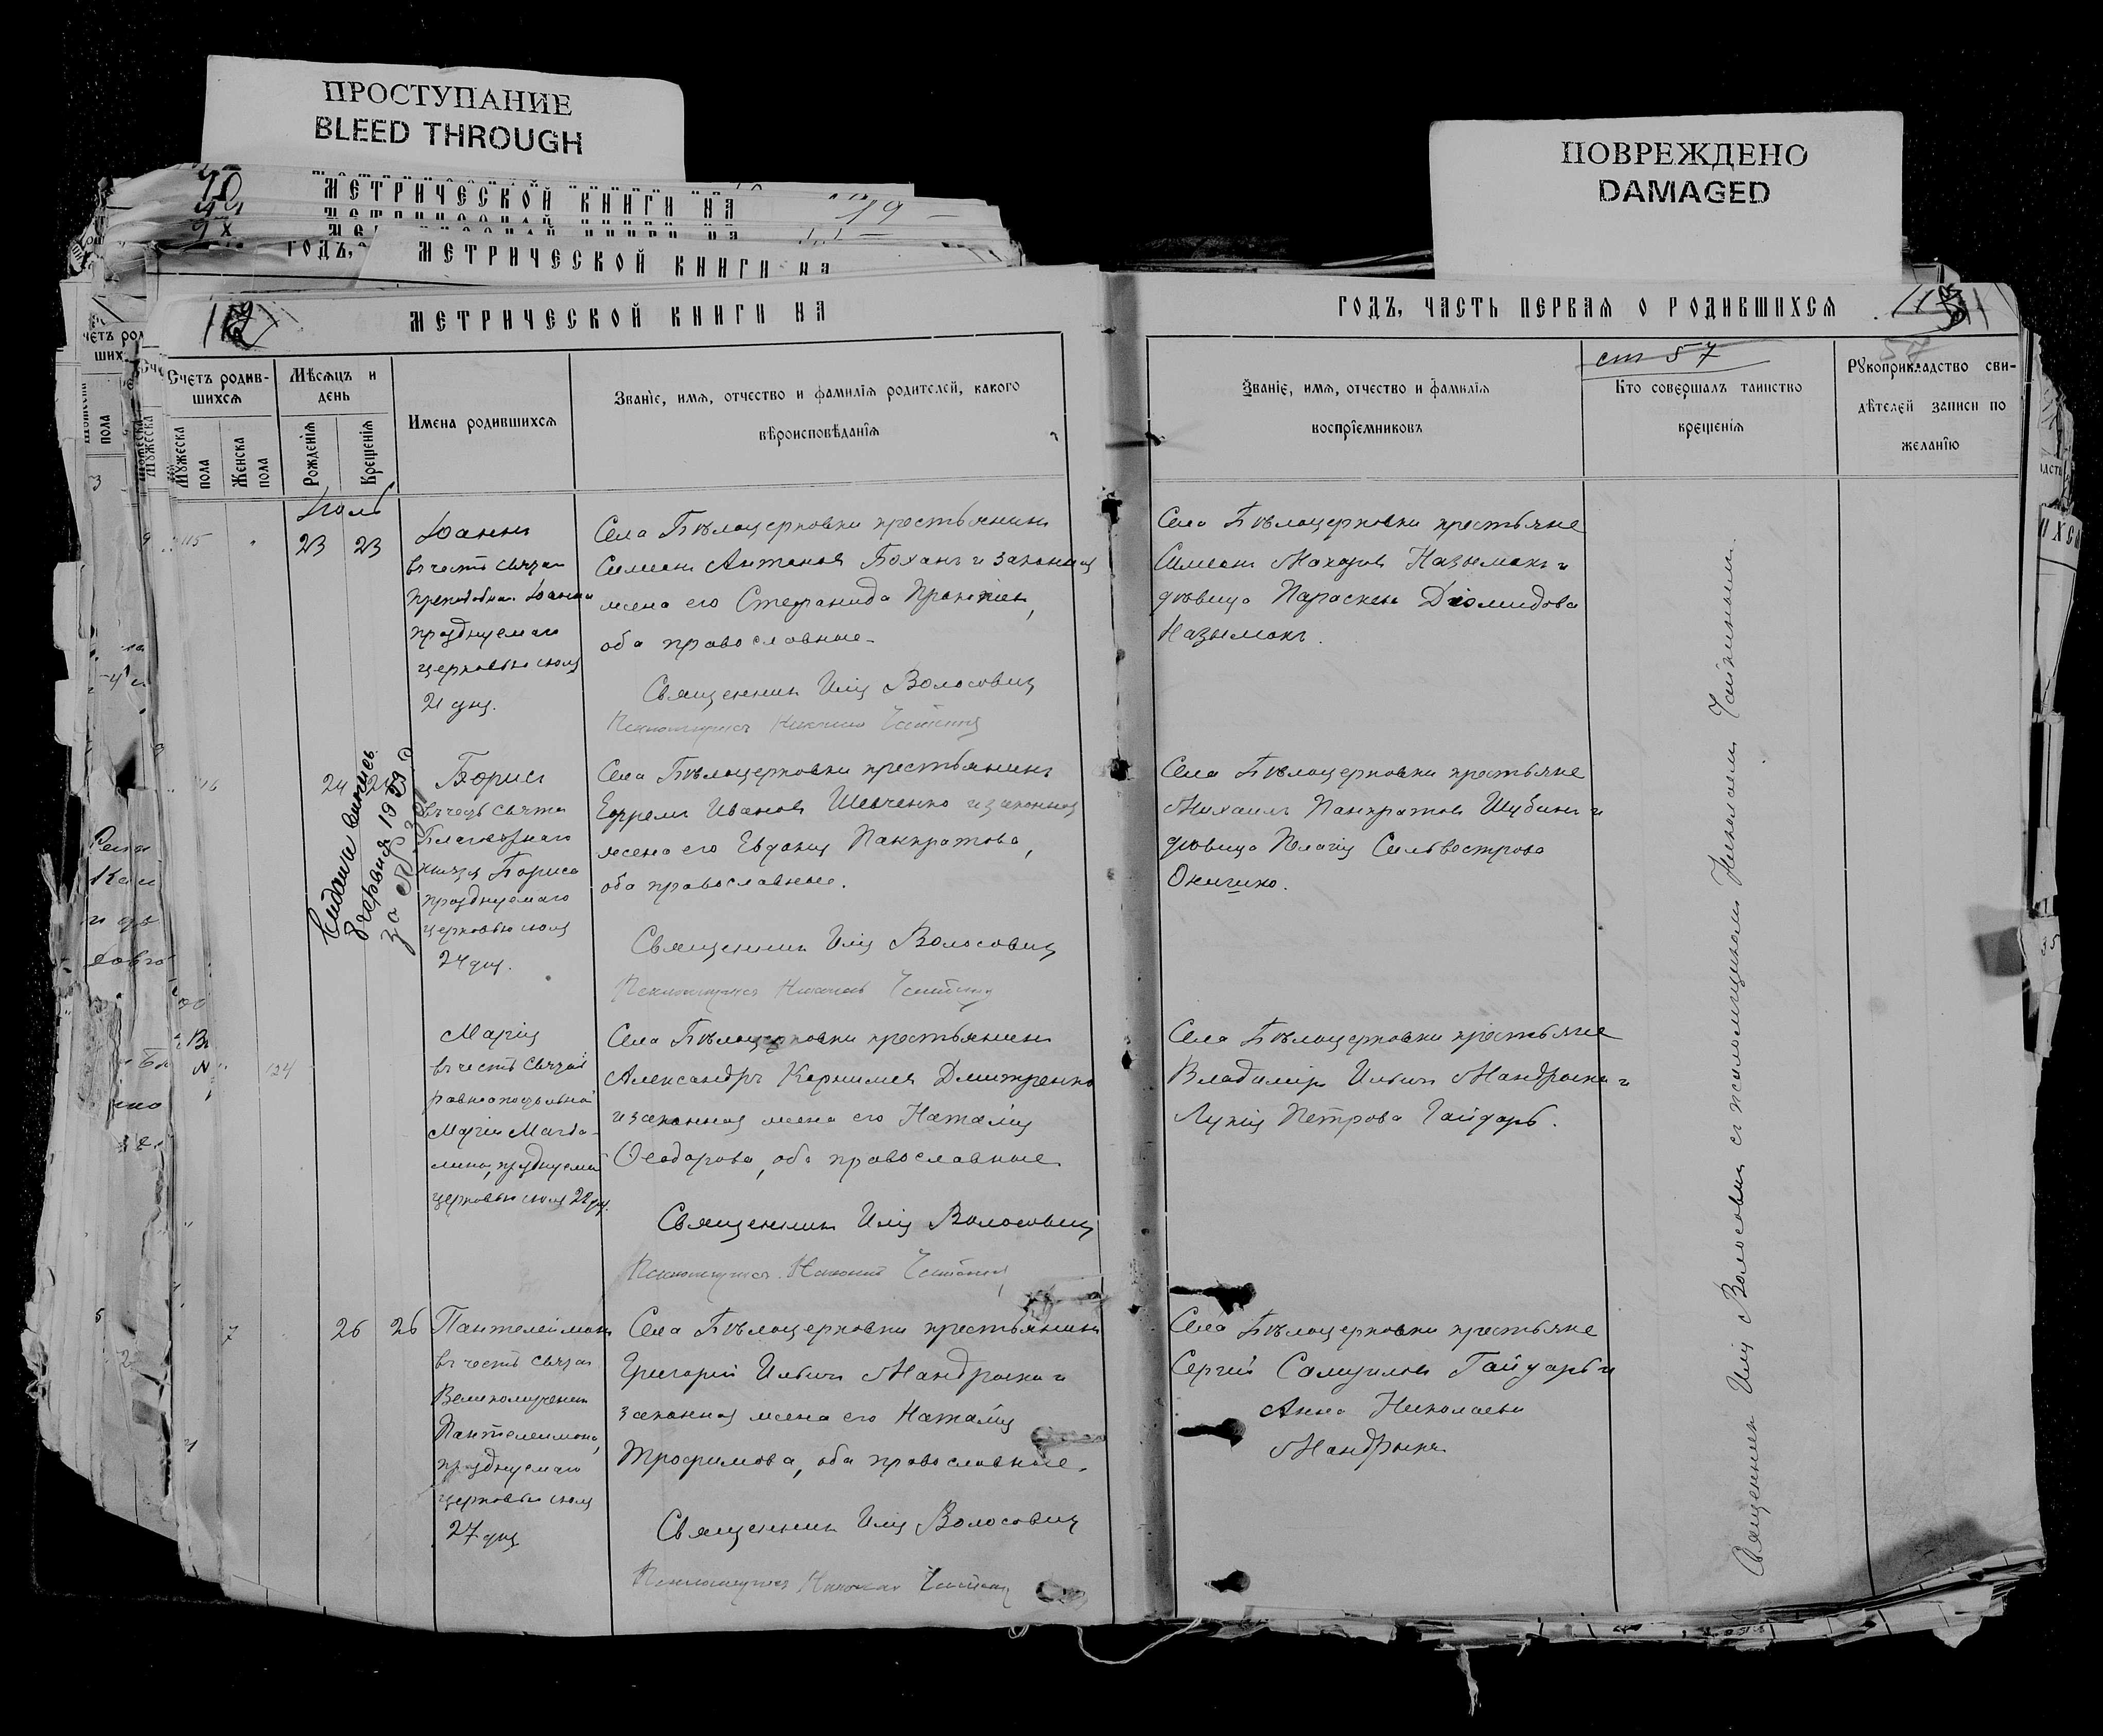 ПРОСТУПАНИЕ
BLEED THROUGH
ПОВРЕЖДЕНО
DAMAGED
МЕТРИЧЕСКОЙ КНИГИ НА 19
ГОДЪ,
МЕТРИЧЕСКОЙ КНИГИ на
МЕТРИЧЕСКОЙ КНИГИ НА
Счетъ родив-
шихся
Мужеска
пола
Женска
пола
Мѣсяцъ и
день
Рожденія
Крещенія
Имена родившихся
Званіе, имя, отчество и фамилія родителей, какого
вѣроисповѣданія
Іюль
115
23 23
Іоаннъ
въ честь святаго
преподобнаго Іоанна
празднуемаго
церковью іюля
21 дня.
Села Бѣлоцерковки крестьянинъ
Симеонъ Антоновъ Боханъ и законная
жена его Стефанида
оба православные.
Священникъ Илія Волосовичъ
Псаломщикъ Николай
24 25
Борисъ
въ честь святаго
Благовѣрнаго
князя Бориса
празднуемаго
церковью іюля
24 дня.
Выдана выпись
февраля
за №
Села Бѣлоцерковки крестьянинъ
Ефремъ Ивановъ Шевченко и законная
жена его Евдокія Панкратова,
оба православные.
Священникъ Илія Волосовичъ
Псаломщикъ Николай
124
Марія
въ честь святой
равноапостольной
Маріи Магда-
лины, празднуемой
церковью іюля 22 дня.
Села Бѣлоцерковки крестьянинъ
Александръ Корниліевъ Дмитренко
и законная жена его Наталія
Ѳеодорова, оба православные
Священникъ Илія Волосовичъ
Псаломщикъ Николай
7
26 26
Пантелеимонъ
въ честь святаго
Великомученика
Пантелеимона,
празднуемаго
церковью іюля
27 дня
Села Бѣлоцерковки крестьянинъ
Григорій Ильинъ Мандрыка и
законная жена его Наталія
Трофимова, оба православные.
Священникъ Илія Волосовичъ
Псаломщикъ Николай
ГОДЪ, ЧАСТЬ ПЕРВАЯ О РОДИВШИХСЯ
Званіе, имя, отчество и фамилія
воспріемниковъ
ст 57
Кто совершалъ таинство
крещенія
Рукоприкладство сви-
дѣтелей записи по
желанію
Села Бѣлоцерковки крестьяне
Симеонъ Назымокъ и
дѣвица Параскева Діомидова
Назымокъ.
Села Бѣлоцерковки крестьяне
Михаилъ Панкратовъ Шубинъ и
дѣвица Пелагія Сильвестрова
Онишко.
Села Бѣлоцерковки крестьяне
Владиміръ Ильинъ Мандрыка и
Лукія Петрова Гайдарь.
Села Бѣлоцерковки крестьяне
Сергій Самуиловъ Гайдарь и
Анна Николаева
Мандрыка
Священникъ Илія Волосовичъ съ псаломщикомъ Николаемъ